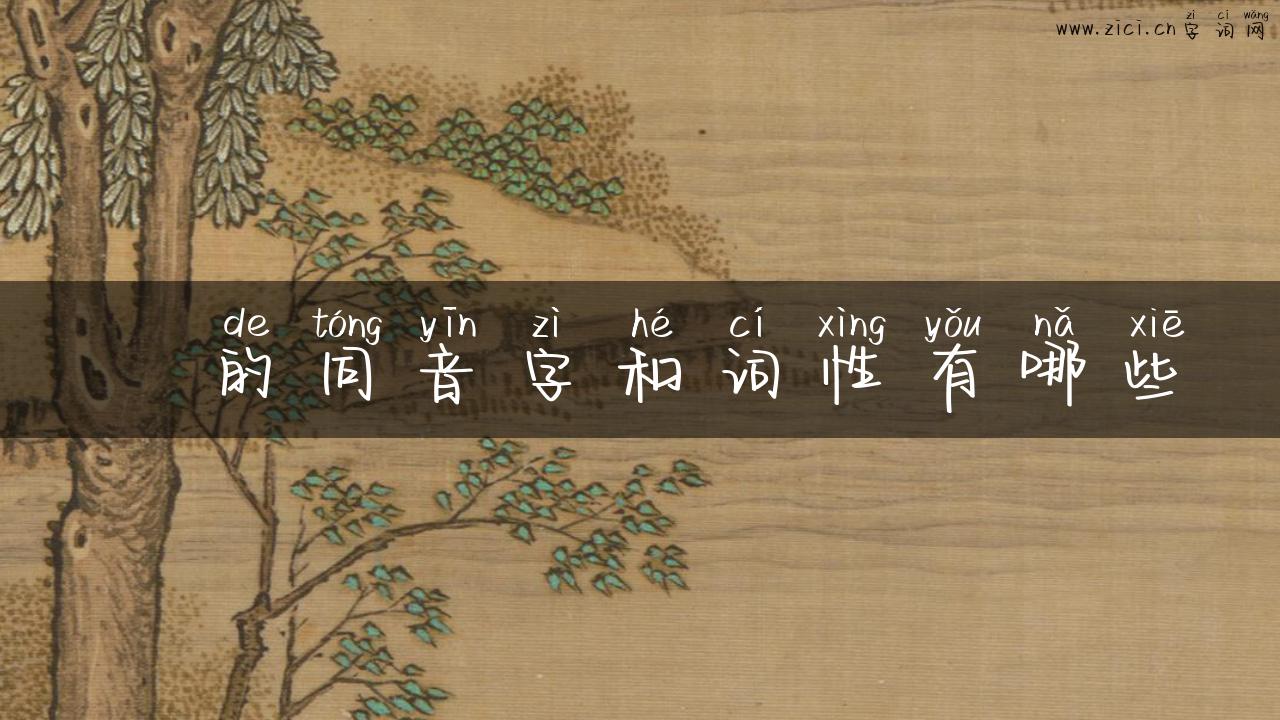 zì cí wǎng
www.zici.cn 字词网
de tóng yīn zì hé cí xìng yǒu nǎ xiē
的同音字和词性有哪些